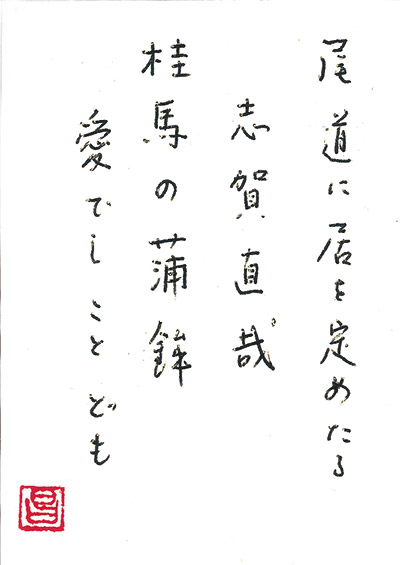 尾道に居を定めたる
志賀直哉
桂馬の蒲鉾
愛でしことども